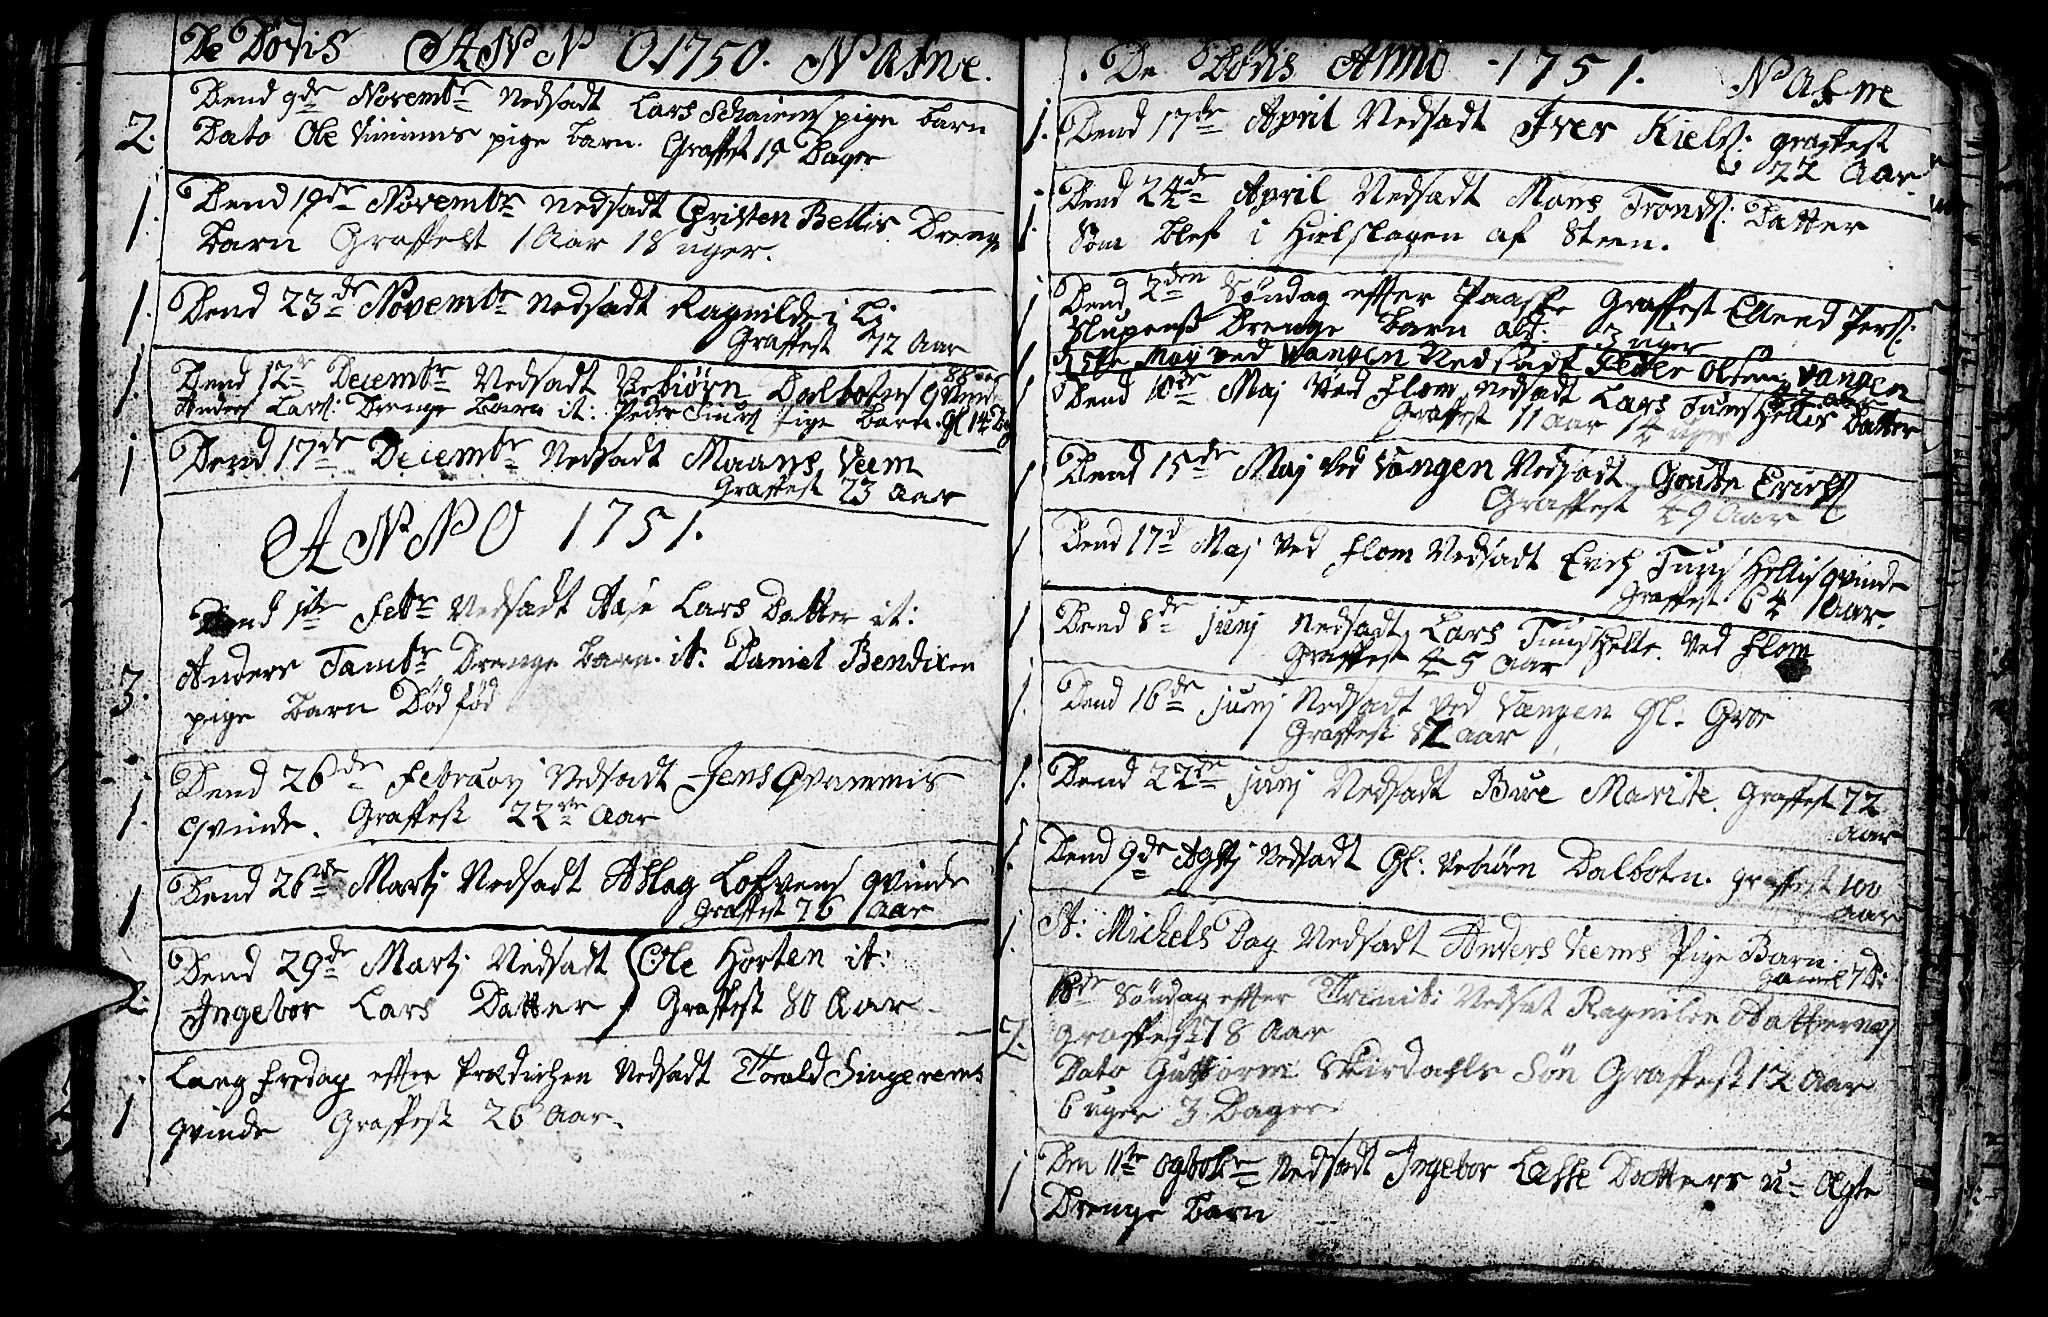 De Dødis ANNO 1750. Nafne.
Dend 9de Novembr Nedsadt Lars Schaiens pige barn
2. Dato Ole Vinjums pige barn. Graffest 15 Dager
Dend 19de Novembr nedsadt Christen Bellis Drenge
1. barn Graffest 1 Aar 18 uger.
1. Dend 23de Novembr Nedsadt Ragnilde i Li
Graffest 72 Aar
1. Dend 12te Decembr Nedsadt Vebiørn Dalbotens qvinde
Anders Lars: Drenge barn it: Peder Tuuns pige barn. Gl 14 Dg
1 Dend 17de Decembr Nedsadt Maans Veem
Graffest 23 aar
ANNO 1751.
Dend 1te Febr Nedsadt Aase Lars Datter it:
Anders Tambr Drenge barn. it. Daniel Bendixen
3. pige barn Død fød
Dend 26de February Nedsadt Jens Qvammis
1. qvinde. Graffest 22ve Aar
Dend 26de Martj Nedsadt Aslag Lofvens qvinde
1 Graffest 76 Aar
Dend 29de Martj Nedsadt Ole Horten it:
2. Ingebor Lars Datter Graffest 80 Aar
Lang fredag effter Prædichen Nedsadt Torald
1 qvinde Graffest 26 Aar.
De Dødis Anno 1751. Nafne
1. Dend 17de April Nedsadt Iver Kiels: graffest
22 Aar.
Dend 24de April Nedsadt Mons Tronds: Datter
1. Som blef i Hielslagen af Steen.
1 Dend 2den Søndag effter Paaske Graffest Ellend Pers:
Slupens Drenge barn alt: 3 uger
1 May ved Vangen Nedsadt Peder Olsen Vangen
1 Dend 10de Maj Ved Flom nedsadt Lars Tuns Hellis Datter
Graffest 11 Aar 14 uger
1 Dend 15de Maj ved Vangen Nedsadt Goutte Erichs
Graffest 49 Aar
1 Dend 17d Maj ved Flom Nedsadt Erich Tuuns Hellis qvinde
Graffest 64 Aar.
1 Dend 8de Junj Nedsadt Lars Tuns Helle. Ved Flom
Graffest 45 Aar
1. Dend 16de Junj Nedsadt ved Vangen Gl. Gro
Graffest 82 aar
1. Dend 22de Junj Nedsadt Bure Marite. Graffest 72
Aar
1. Dend 9de Agstj Nedsadt Gl: Vebiørn Dalboten. graffest 100
Aar
1. St: Michels Dag Nedsadt Anders Veems Pige Barn.
Gamel 7 d:
18de Søndag effter Trinit: Nedsat Ragnilde
2. Graffest 78 Aar
Dato Guttorm Skirdahls Søn Graffest 12 Aar
6 uger 3 Dager
1 Den 11te Ogtobr Nedsadt Ingebor Lasse Datters u-Ægte
Drenge barn